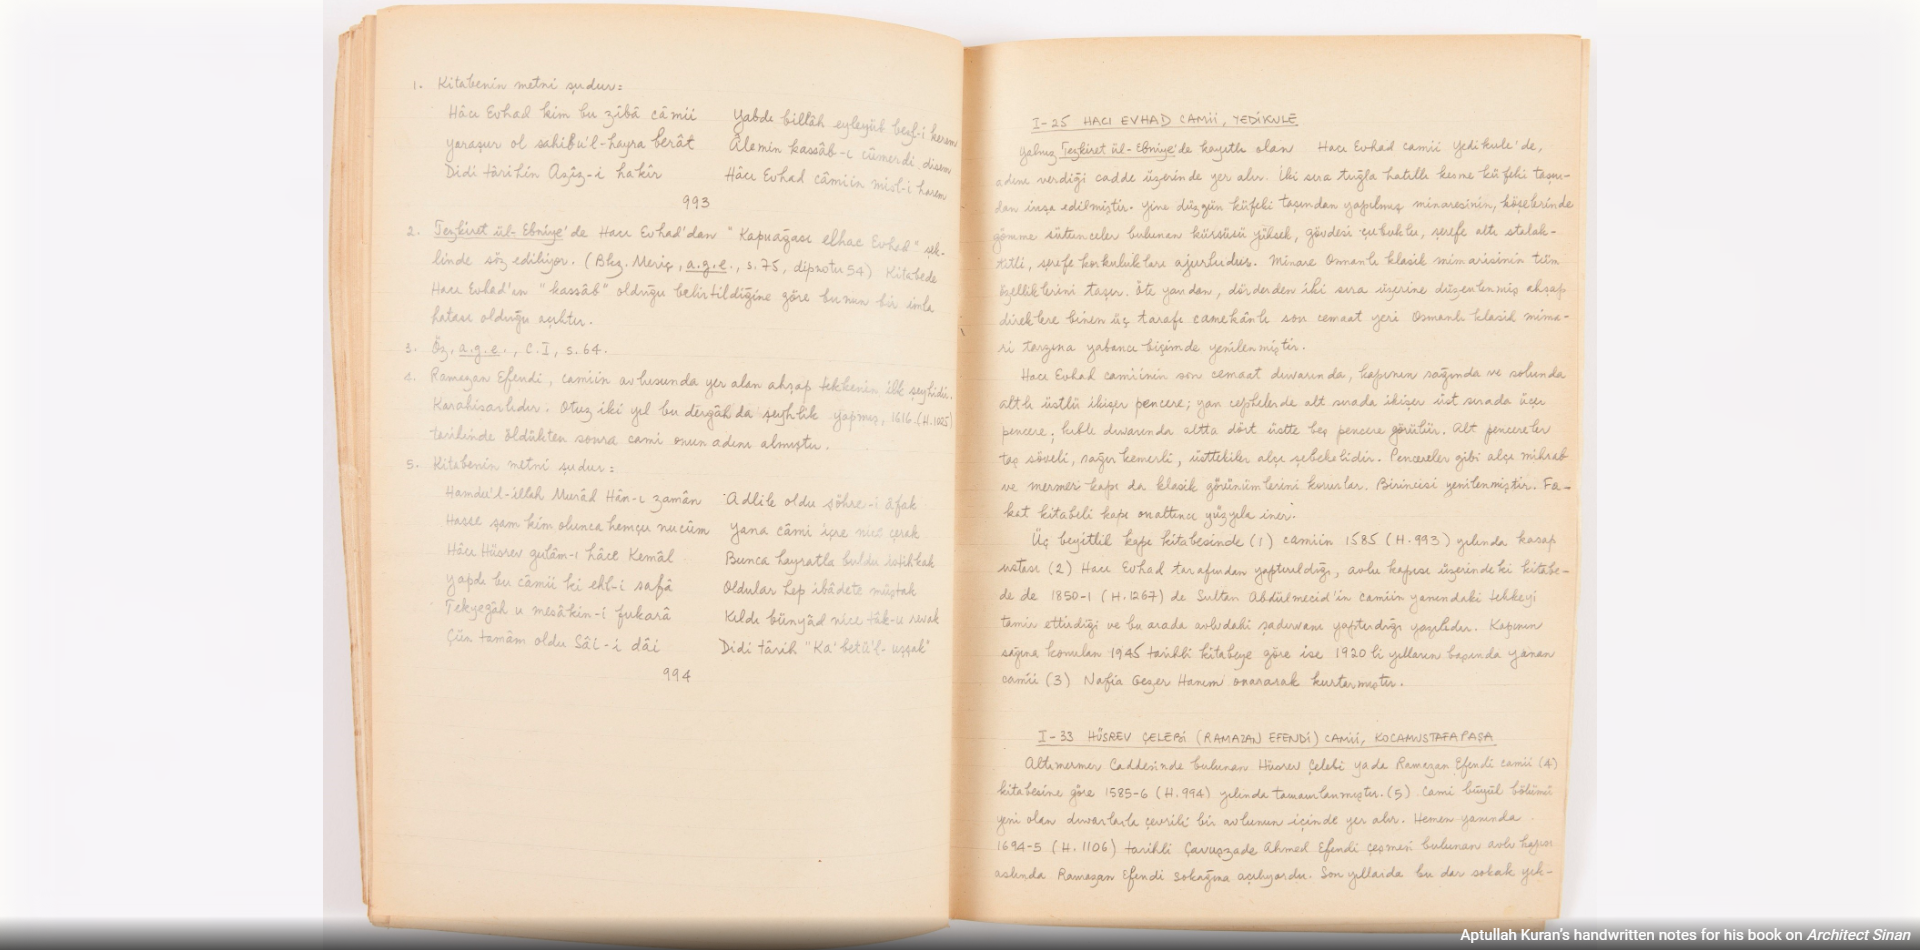 1. Kitabenin metni şudur:
Hâcı Evhad kim bu zîbâ câmii   Yabdı billâh eyleyüb bezl-i kerem
yaraşur ol sahibü'l-hayra berât   Âlemin kassâb-ı cümerdi disem
Didi târihin Azîz-i hakîr   Hâcı Evhad câmiin misl-i harem
993
2. Tezkiret ül-Ebniye'de Hacı Evhad'dan "Kapuağası elhac Evhad" şek-
linde söz ediliyor. (Bkz. Meriç, a.g.e., s.75, dipnotu 54) Kitabede
Hacı Evhad'ın "kassâb" olduğu belirtildiğine göre bunun bir imla
hatası olduğu açıktır.
3. Öz, a.g.e., C.I, s.64.
4. Ramazan Efendi, camiin avlusunda yer alan ahşap tekkenin ilk şeyhidir.
Karahisarlıdır. Otuz iki yıl bu dergâhda şeyhlik yapmış, 1616 (H.1025)
tarihinde öldükten sonra cami onun adını almıştır.
5. Kitabenin metni şudur:
Hamdu'l-illah Murâd Hân-ı zamân   Adlile oldu şöhre-i âfak
Hasse şam kim olunca hemçu nucûm   Yana câmi içre nice çerak
Hâcı Hüsrev gulâm-ı hâce Kemâl   Bunca hayratla buldu istihkak
yapdı bu câmii ki ehl-i safâ   Oldular hep ibâdete müştak
Tekyegâh u mesâkin-i fukarâ   Kıldı bünyâd nice tâk-u revak
Çün tamâm oldu Sâi-i dâi   Didi târih "Ka'betü'l-uşşak"
994
I-25 HACI EVHAD CAMİİ, YEDİKULE
Yalnız Tezkiret ül-Ebniye'de kayıtlı olan Hacı Evhad camii Yedikule'de,
adını verdiği cadde üzerinde yer alır. İki sıra tuğla hatıllı kesme küfeki taşın-
dan inşa edilmiştir. Yine düzgün küfeki taşından yapılmış minaresinin, köşelerinde
gömme sütunceler bulunan kürsüsü yüksek, gövdesi çubuklu, şerefe altı stalak-
titli, şerefe korkulukları ajurludur. Minare Osmanlı klasik mimarisinin tüm
özelliklerini taşır. Öte yandan, dörderden iki sıra üzerine düzenlenmiş ahşap
direklere binen üç tarafı camekânlı son cemaat yeri Osmanlı klasik mima-
ri tarzına yabancı biçimde yenilenmiştir.
Hacı Evhad camiinin son cemaat duvarında, kapının sağında ve solunda
altlı üstlü ikişer pencere; yan cephelerde alt sırada ikişer üst sırada üçer
pencere; kıble duvarında altta dört üstte beş pencere görülür. Alt pencereler
taş söveli, sağır kemerli, üsttekiler alçı şebekelidir. Pencereler gibi alçı mihrab
ve mermer kapı da klasik görünümlerini korurlar. Birincisi yenilenmiştir. Fa-
kat kitabeli kapı onaltıncı yüzyıla iner.
Üç beyitlik kapı kitabesinde (1) camiin 1585 (H.993) yılında kasap
ustası (2) Hacı Evhad tarafından yaptırıldığı, avlu kapısı üzerindeki kitabe-
de de 1850-1 (H.1267) de Sultan Abdülmecid'in camiin yanındaki tekkeyi
tamir ettirdiği ve bu arada avludaki şadırvanı yaptırdığı yazılıdır. Kapının
sağına konulan 1945 tarihli kitabeye göre ise 1920 li yılların başında yanan
camii (3) Nafia Gezer Hanım onararak kurtarmıştır.
I-33 HÜSREV ÇELEBİ (RAMAZAN EFENDİ) CAMİİ, KOCAMUSTAFAPAŞA
Altımermer Caddesinde bulunan Hüsrev Çelebi yada Ramazan Efendi camii (4)
kitabesine göre 1585-6 (H.994) yılında tamamlanmıştır. (5) Cami büyük bölümü
yeni olan duvarlarla çevrili bir avlunun içinde yer alır. Hemen yanında
1694-5 (H.1106) tarihli Çavuşzade Ahmed Efendi çeşmesi bulunan avlu kapısı
aslında Ramazan Efendi sokağına açılıyordu. Son yıllarda bu dar sokak yık-
Aptullah Kuran's handwritten notes for his book on Architect Sinan